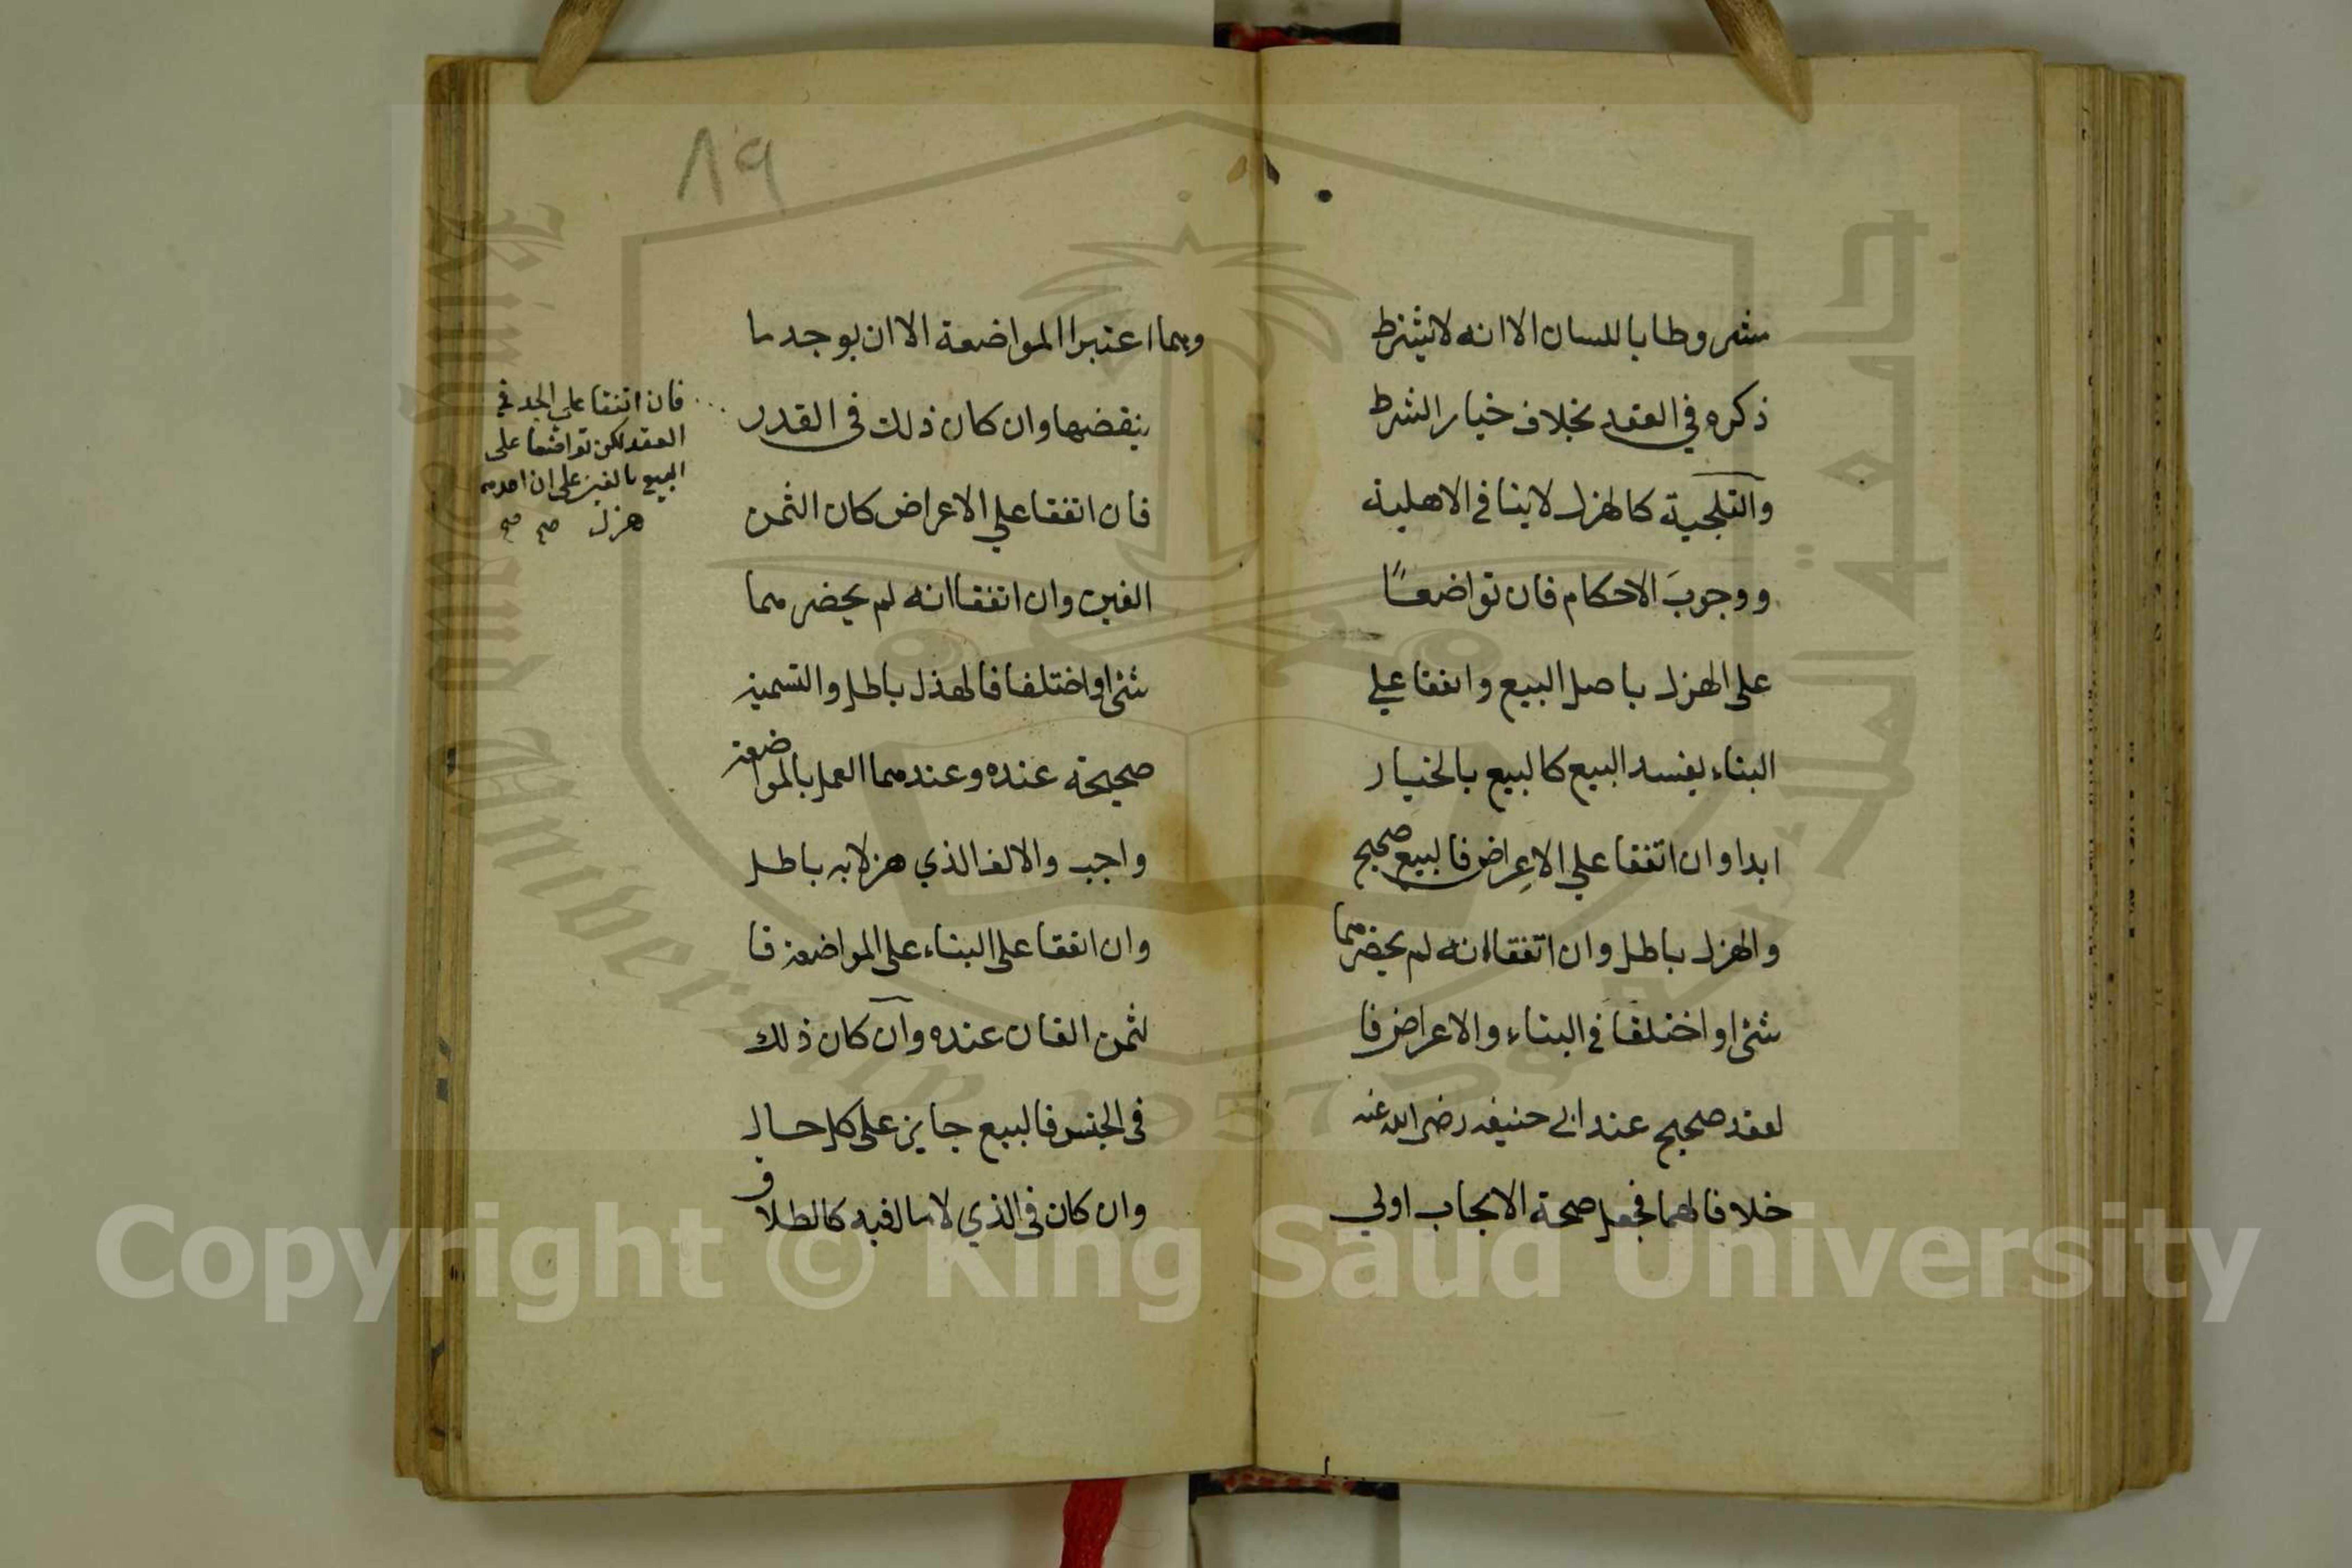 مشروطا باللسان الا انه لا يشترط
ذكره في العقد بخلاف خيار الشرط
والتلجية كالهزل لا ينافي الاهلية
ووجوبَ الاحكام فان تواضعًا
على الهزل باصل البيع واتفقا علي
البناء يفسد البيع كالبيع بالخيار
ابدا وان اتفقا علي الاعِراض فالبيع صحيح
والهزل باطل وان اتفقا انه لم يحضرهما
شئ او اختلفا في البناء والاعراض فا
لعقد صحيح عند ابي حنيفه رضى الله عنه
خلافا لهما فجعل صحة الايجاب اولي
٨٩
وهما اعتبرا المواضعة الا ان يوجد ما
ينقضها وان كان ذلك فى القدر
فان اتفقا علي الاعراض كان الثمن
الفين وان اتفقا انه لم يحضرهما
شئ او اختلفا فالهذل باطل والتسمية
صحيحة عنده وعندهما العمل بالمواضعة
واجب والالف الذي هزلا به باطل
وان اتفقا على البناء على المواضعة فا
لثمن الفان عنده وان كان ذلك
فى الجنس فالبيع جايز على كل حال
وان كان فى الذي لا مال فيه كالطلاق
فان اتفقا علي الجد في
العقد لكن تواضعا على
البيع بالفين على ان احدهما
هزل صح صح
جامعة الملك سعود
King Saud University
1957
Copyright © King Saud University